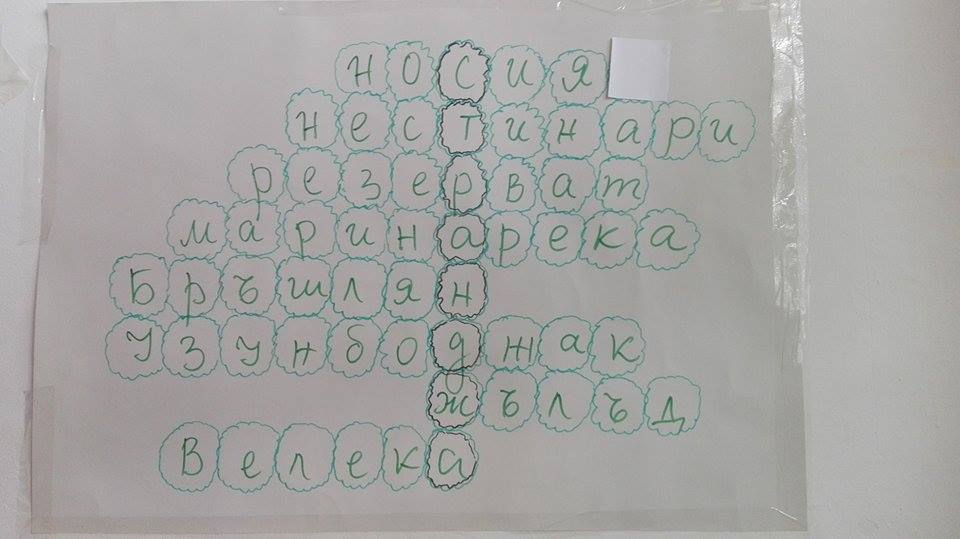 носия
нестинари
резерват
маринарека
Бръшлян
Узунбоджак
жълъд
Велека